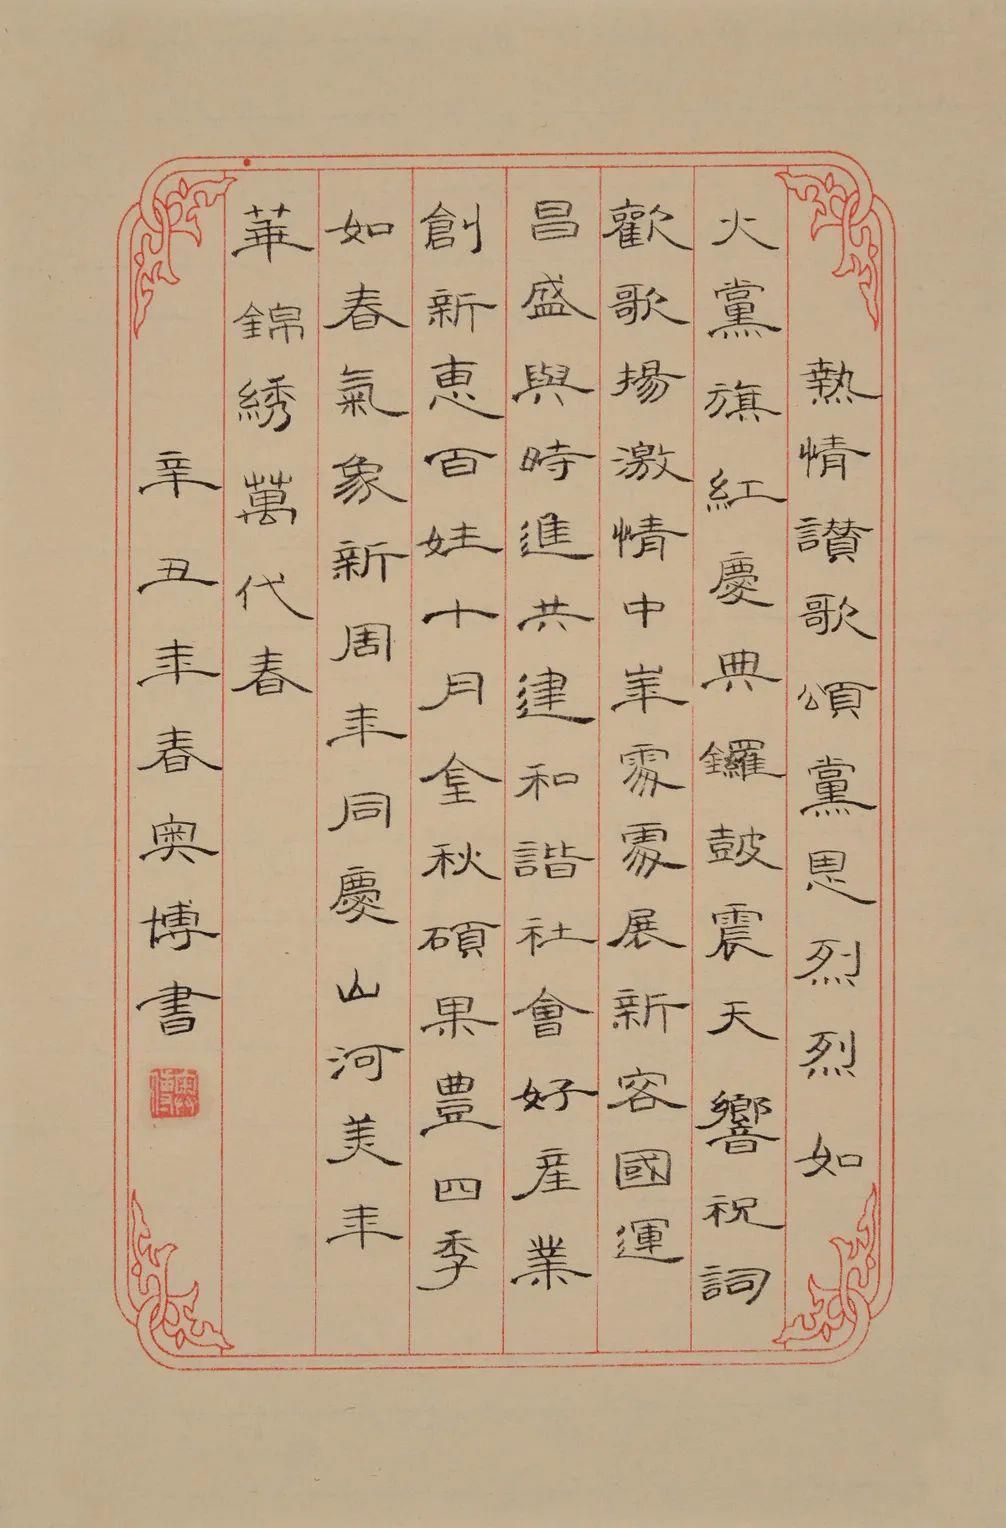 熱情讃歌頌黨恩烈烈如
火黨旗紅慶典鑼鼓震天響祝詞
歡歌揚激情中華處處展新容國運
昌盛與時進共建和諧社會好産業
創新惠百姓十月金秋碩果豊四季
如春氣象新周年同慶山河美年
華錦綉萬代春
辛丑年春奥博書